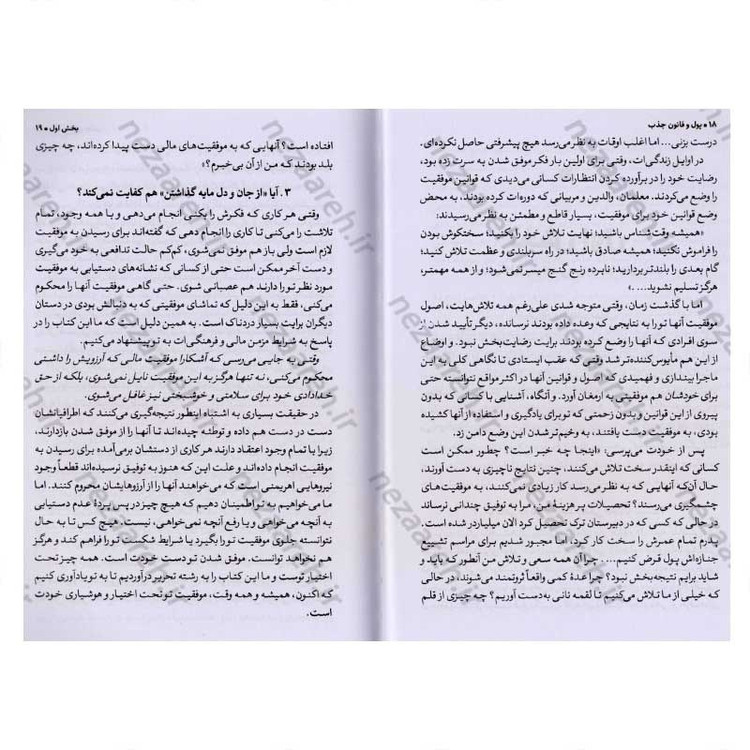 ۱۸ • پول و قانون جذب
درست بزنی... اما اغلب اوقات به نظر می‌رسد هیچ پیشرفتی حاصل نکرده‌ای.
در اوایل زندگی‌ات، وقتی برای اولین بار فکر موفق شدن به سرت زده بود،
رضایت خود را در برآورده کردن انتظارات کسانی می‌دیدی که قوانین موفقیت
را وضع می‌کردند. معلمان، والدین و مربیانی که دوره‌ات کرده بودند، به محض
وضع قوانین خود برای موفقیت، بسیار قاطع و مطمئن به نظر می‌رسیدند:
«همیشه وقت‌شناس باشید؛ نهایت تلاش خود را بکنید؛ سختکوش بودن
را فراموش نکنید؛ همیشه صادق باشید؛ در راه سربلندی و عظمت تلاش کنید؛
گام بعدی را بلندتر بردارید؛ نابرده رنج گنج میسر نمی‌شود؛ و از همه مهمتر،
هرگز تسلیم نشوید... .»
اما با گذشت زمان، وقتی متوجه شدی علی‌رغم همه تلاش‌هایت، اصول
موفقیت آنها تو را به نتایجی که وعده داده بودند نرسانده، دیگر تأیید شدن از
سوی افرادی که آنها را وضع کرده بودند برایت رضایت‌بخش نبود. و اوضاع
از این هم مأیوس‌کننده‌تر شد وقتی که عقب ایستادی تا نگاهی کلی به این
ماجرا بیندازی و فهمیدی که اصول و قوانین آنها در اکثر مواقع نتوانسته حتی
برای خودشان هم موفقیتی به ارمغان آورد. و آنگاه، آشنایی با کسانی که بدون
پیروی از این قوانین و بدون زحمتی که تو برای یادگیری و استفاده از آنها کشیده
بودی، به موفقیت دست یافتند، به وخیم‌تر شدن این وضع دامن زد.
پس از خودت می‌پرسی: «اینجا چه خبر است؟ چطور ممکن است
کسانی که اینقدر سخت تلاش می‌کنند، چنین نتایج ناچیزی به دست آورند،
حال آن‌که آنهایی که به نظر می‌رسد کار زیادی نمی‌کنند، به موفقیت‌های
چشمگیری می‌رسند؟ تحصیلات پر هزینهٔ من، مرا به توفیق چندانی نرساند
در حالی که کسی که در دبیرستان ترک تحصیل کرد الان میلیاردر شده است.
پدرم تمام عمرش را سخت کار کرد، اما مجبور شدیم برای مراسم تشییع
جنازه‌اش پول قرض کنیم... . چرا آن همه سعی و تلاش من آنطور که باید و
شاید برایم نتیجه‌بخش نبود؟ چرا عدهٔ کمی واقعاً ثروتمند می‌شوند، در حالی
که خیلی از ما تلاش می‌کنیم تا لقمه نانی به‌دست آوریم؟ چه چیزی از قلم
بخش اول • ۱۹
افتاده است؟ آنهایی که به موفقیت‌های مالی دست پیدا کرده‌اند، چه چیزی
بلد بودند که من از آن بی‌خبرم؟»
۳. آیا «از جان و دل مایه گذاشتن» هم کفایت نمی‌کند؟
وقتی هر کاری که فکرش را بکنی انجام می‌دهی و با همه وجود، تمام
تلاشت را می‌کنی تا کاری را انجام دهی که گفته‌اند برای رسیدن به موفقیت
لازم است ولی باز هم موفق نمی‌شوی، کم‌کم حالت تدافعی به خود می‌گیری
و دست آخر ممکن است حتی از کسانی که نشانه‌های دستیابی به موفقیت
مورد نظر تو را دارند هم عصبانی شوی. حتی گاهی موفقیت آنها را محکوم
می‌کنی، فقط به این دلیل که تماشای موفقیتی که به دنبالش بودی در دستان
دیگران برایت بسیار دردناک است. به همین دلیل است که ما این کتاب را در
پاسخ به شرایط مزمن مالی و فرهنگی‌ات به تو پیشنهاد می‌کنیم.
وقتی به جایی می‌رسی که آشکارا موفقیت مالی که آرزویش را داشتی
محکوم می‌کنی، نه تنها هرگز به این موفقیت نایل نمی‌شوی، بلکه از حق
خدادادی خود برای سلامتی و خوشبختی نیز غافل می‌شوی.
در حقیقت بسیاری به اشتباه اینطور نتیجه‌گیری می‌کنند که اطرافیانشان
دست در دست هم داده و توطئه چیده‌اند تا آنها را از موفق شدن بازدارند،
زیرا با تمام وجود اعتقاد دارند هر کاری از دستشان برمی‌آمده برای رسیدن به
موفقیت انجام داده‌اند و علت این که هنوز به توفیق نرسیده‌اند قطعاً وجود
نیروهایی اهریمنی است که می‌خواهند آنها را از آرزوهایشان محروم کنند. اما
ما می‌خواهیم به تو اطمینان دهیم که هیچ چیز در پس پردهٔ عدم دستیابی
به آنچه می‌خواهی و یا رفع آنچه نمی‌خواهی، نیست. هیچ کس تا به حال
نتوانسته جلوی موفقیت تو را بگیرد یا شرایط شکست تو را فراهم کند و هرگز
هم نخواهد توانست. موفق شدن تو دست خودت است. همه چیز تحت
اختیار توست و ما این کتاب را به رشته تحریر درآوردیم تا به تو یادآوری کنیم
که اکنون، همیشه و همه وقت، موفقیت تو تحت اختیار و هوشیاری خودت
است.
nezaareh.ir